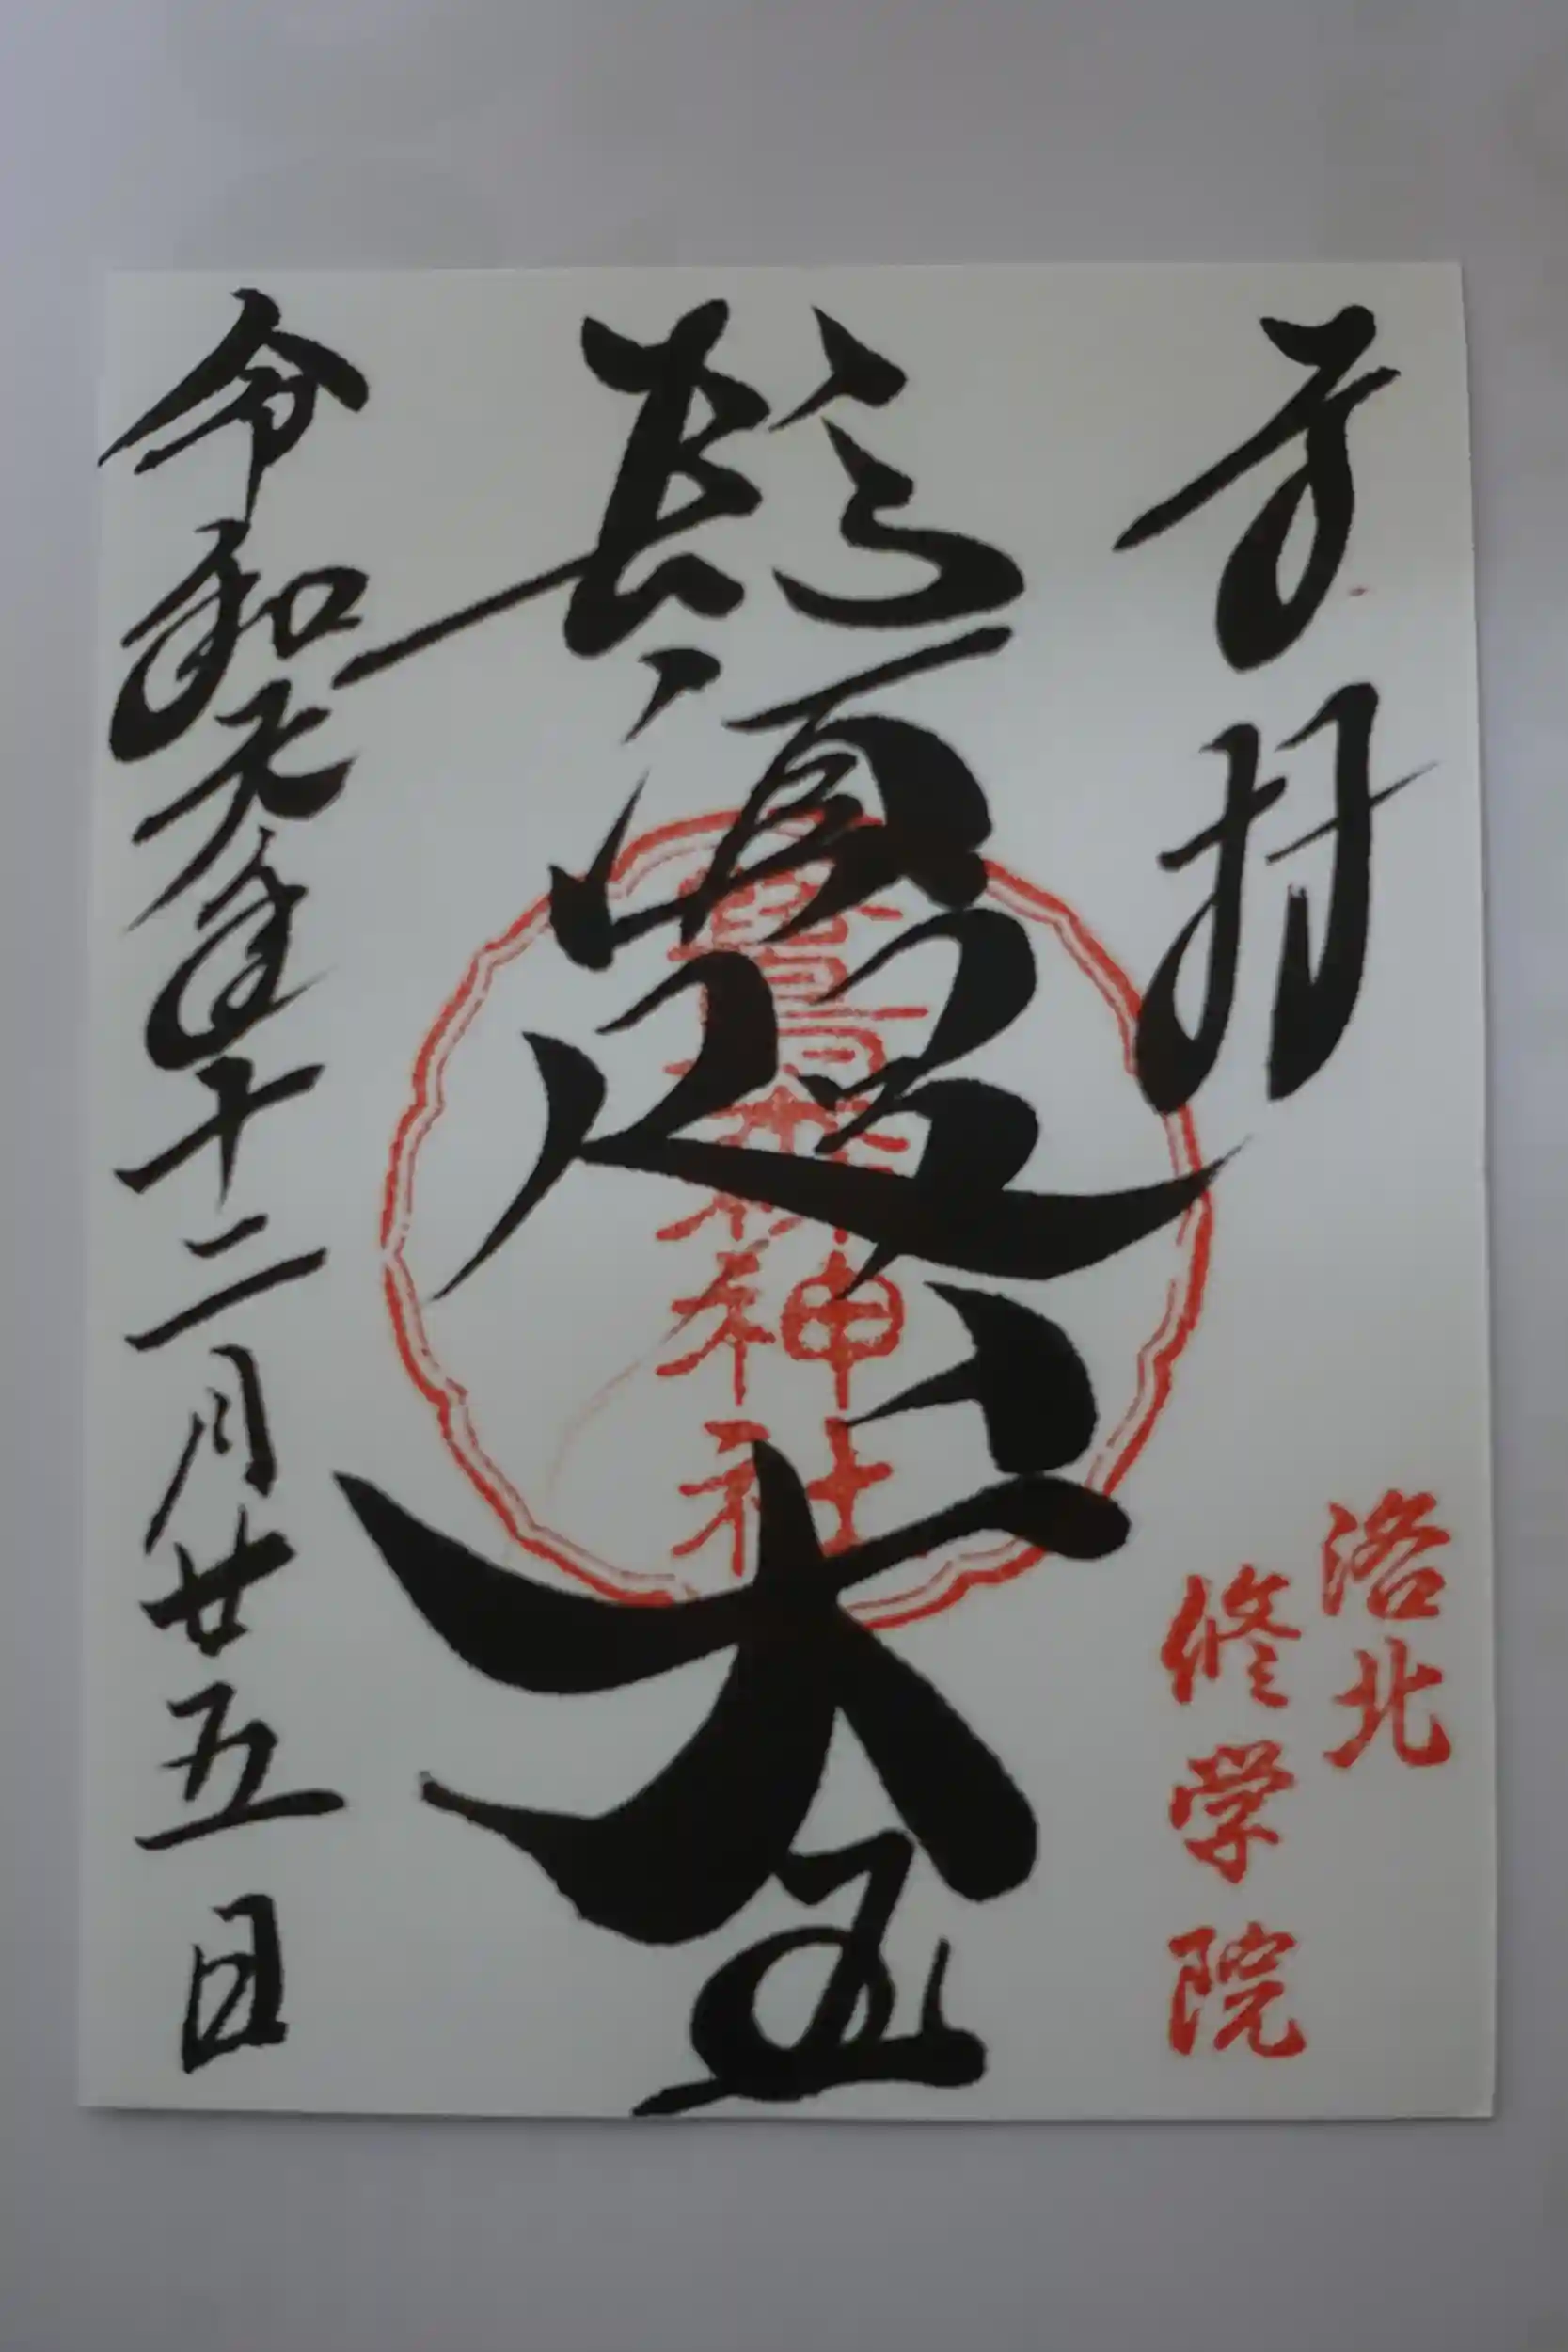 奉拝
洛北
修学院
鬚咫天王
鷺森神社
令和元年十二月廿五日